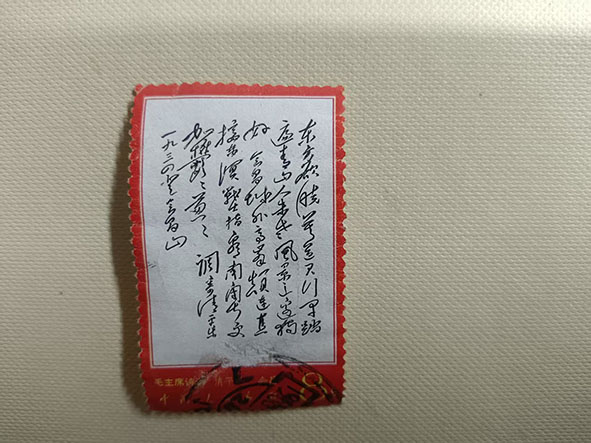 东方欲晓莫道君行早踏
遍青山人未老风景这边独
好会昌城外高峰颠连直
接东溟战士指看南粤更
加郁々葱々 调寄清平乐
一九三四登会昌山
毛主席诗
中国人
8